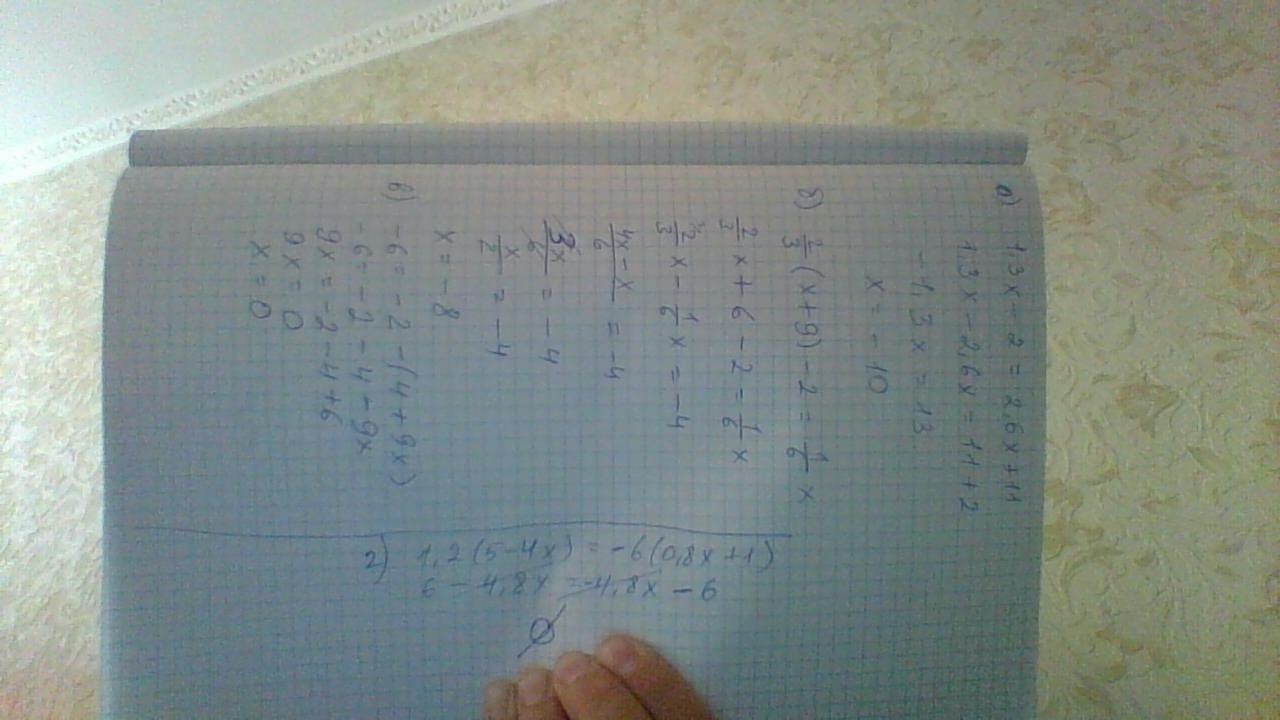 а) 1,3x - 2 = 2,6x + 11
1,3x - 2,6x = 11 + 2
-1,3x = 13
x = -10
б) 2/3 (x + 9) - 2 = 1/6 x
2/3 x + 6 - 2 = 1/6 x
2/3 x - 1/6 x = -4
4x - x / 6 = -4
3x/6 = -4
x/2 = -4
x = -8
в) -6 = -2 - (4 + 9x)
-6 = -2 - 4 - 9x
9x = -2 - 4 + 6
9x = 0
x = 0
г) 1,2 (5 - 4x) = -6 (0,8x + 1)
6 - 4,8x = -4,8x - 6
∅